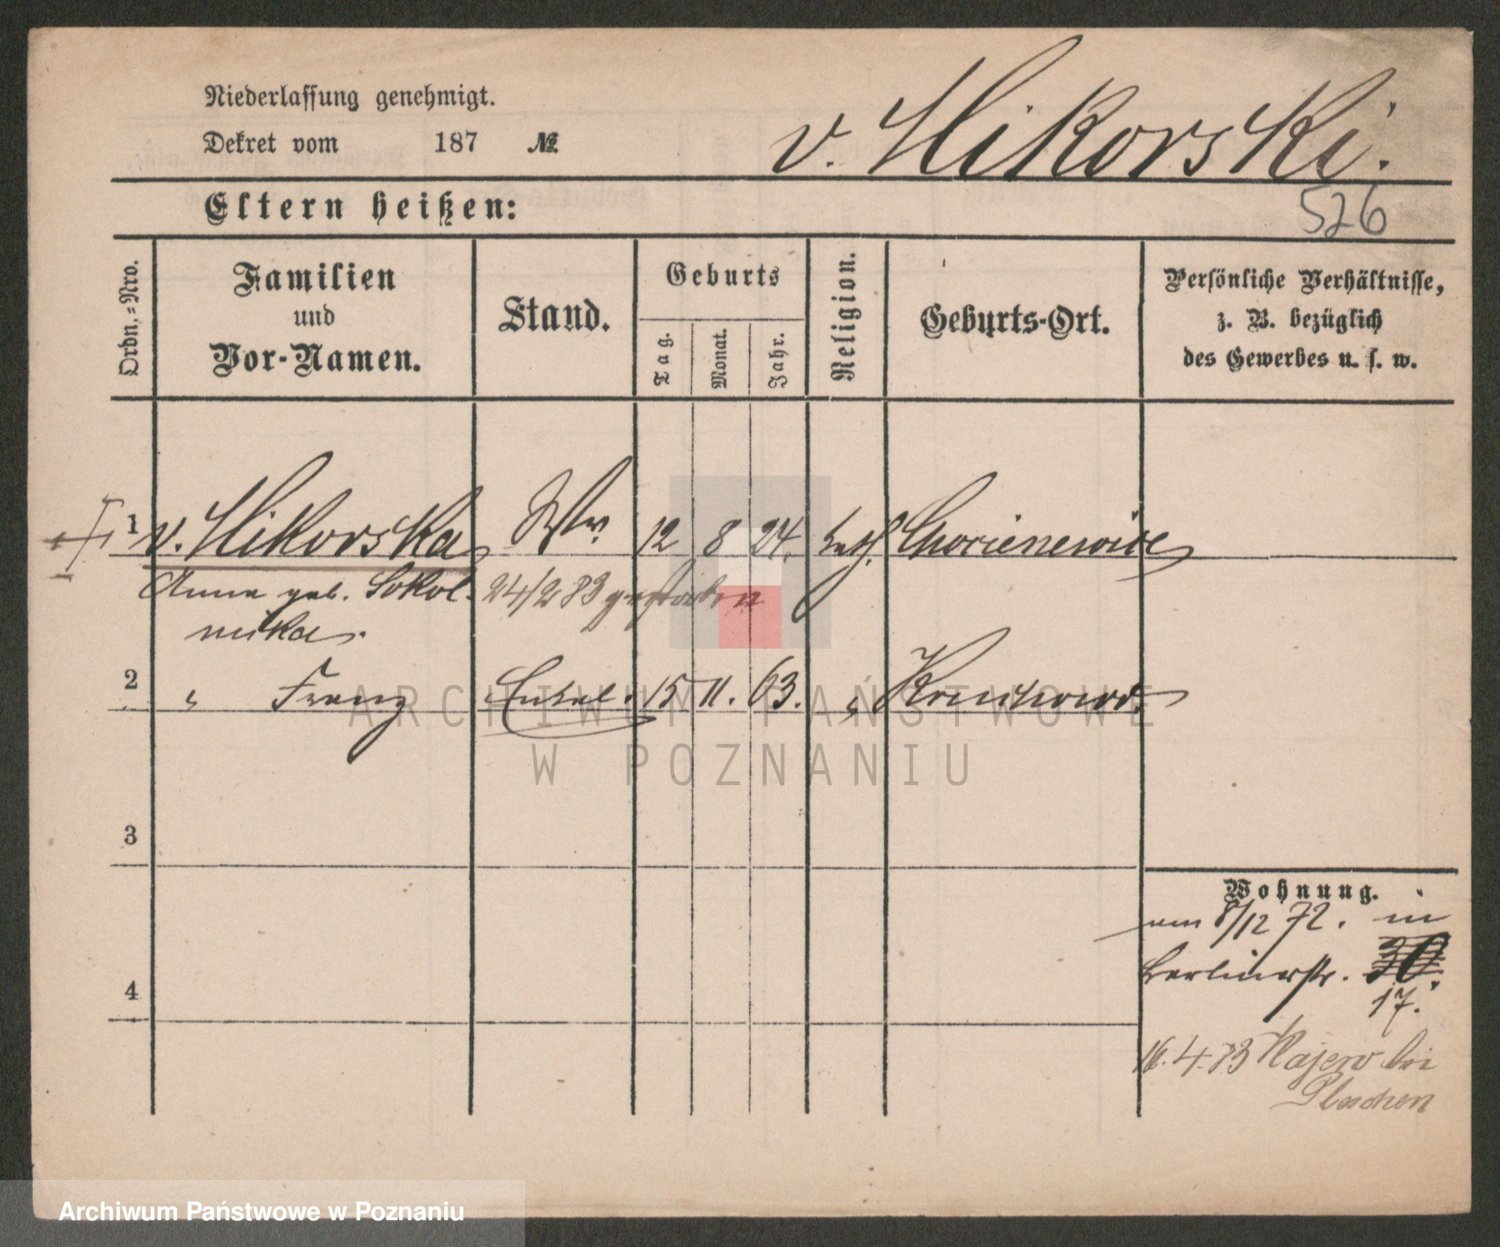 Niederlassung genehmigt.
Dekret vom 187 №
v. Hikorski.
526
Eltern heißen:
Ordn.-Nro.
Familien
und
Vor-Namen.
Stand.
Geburts
Tag.
Monat.
Jahr.
Religion.
Geburts-Ort.
Persönliche Verhältnisse,
z. B. bezüglich
des Gewerbes u. s. w.
1 v. Hikorska Ww. 12 8 24. kath.
Anna geb. Sokol- 24/2 83 gestorben
nicka.
2 " Franz Enkel. 15 11. 63. "
3
4
Wohnung.
am 8/12 72. in
Berlinerstr. 30.
17.
16.4.73 bei
ARCHIWUM PAŃSTWOWE
W POZNANIU
Archiwum Państwowe w Poznaniu